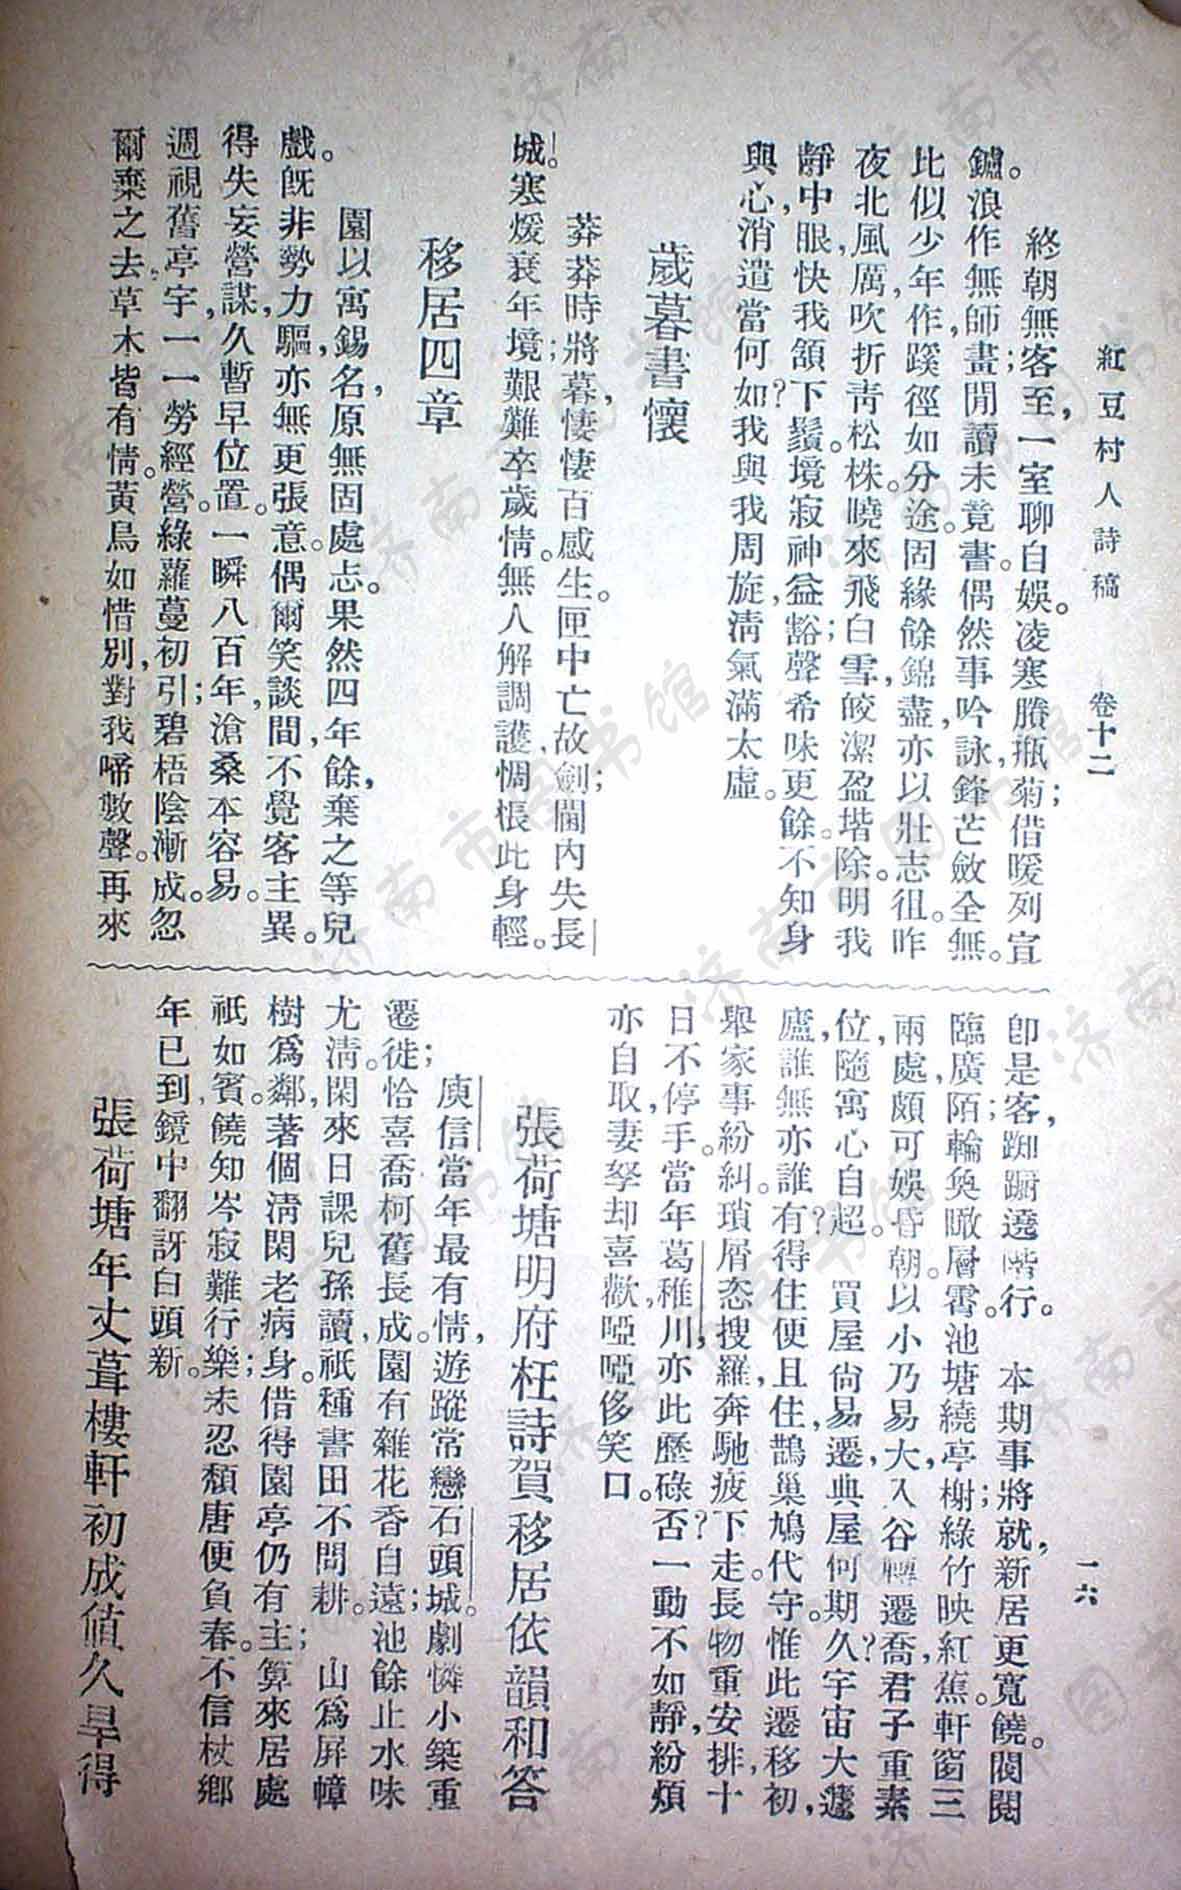 紅豆村人詩稿　卷十二　一六
終朝無客至，一室聊自娛。凌寒賸瓶菊；借暖列宣
鑪。浪作無師畫；閒讀未竟書。偶然事吟詠，鋒芒斂全無。
比似少年作，蹊徑如分途。固緣餘錦盡，亦以壯志徂。昨
夜北風厲，吹折青松株。曉來飛白雪，皎潔盈堦除。明我
靜中眼，快我頷下鬚。境寂神益豁；聲希味更餘。不知身
與心，消遣當何如？我與我周旋，清氣滿太虛。
歲暮書懷
莽莽時將暮，悽悽百感生。匣中亡故劍；閫內失長
城。寒煖衰年境；艱難卒歲情。無人解調護，惆悵此身輕。
移居四章
園以寓錫名，原無固處志。果然四年餘，棄之等兒
戲。旣非勢力驅，亦無更張意。偶爾笑談間，不覺客主異。
得失妄營謀，久暫早位置。一瞬八百年，滄桑本容易。
週視舊亭宇，一一勞經營。綠蘿蔓初引；碧梧陰漸成。忽
爾棄之去，草木皆有情。黃鳥如惜別，對我啼數聲。再來
卽是客，踟躕遶階行。　本期事將就，新居更寬饒。閥閱
臨廣陌；輪奐瞰層霄。池塘繞亭榭；綠竹映紅蕉。軒窗三
兩處，頗可娛昏朝。以小乃易大，入谷轉遷喬。君子重素
位，隨寓心自超。　買屋尙易遷，典屋何期久？宇宙大蘧
廬，誰無亦誰有？得住便且住，鵲巢鳩代守。惟此遷移初，
舉家事紛糾。瑣屑恣搜羅，奔馳疲下走。長物重安排，十
日不停手。當年葛稚川，亦此歷碌否？一動不如靜，紛煩
亦自取。妻孥却喜歡，啞啞侈笑口。
張荷塘明府枉詩賀移居依韻和答
庾信當年最有情，遊蹤常戀石頭城。劇憐小築重
遷徙；恰喜喬柯舊長成。園有雜花香自遠；池餘止水味
尤清。閑來日課兒孫讀，祇種書田不問耕。　山爲屏幛
樹爲鄰，著個清閑老病身。借得園亭仍有主；算來居處
祇如賓。饒知岑寂難行樂；未忍頹唐便負春。不信杖鄉
年已到，鏡中翻訝白頭新。
張荷塘年丈葺樓軒初成値久旱得